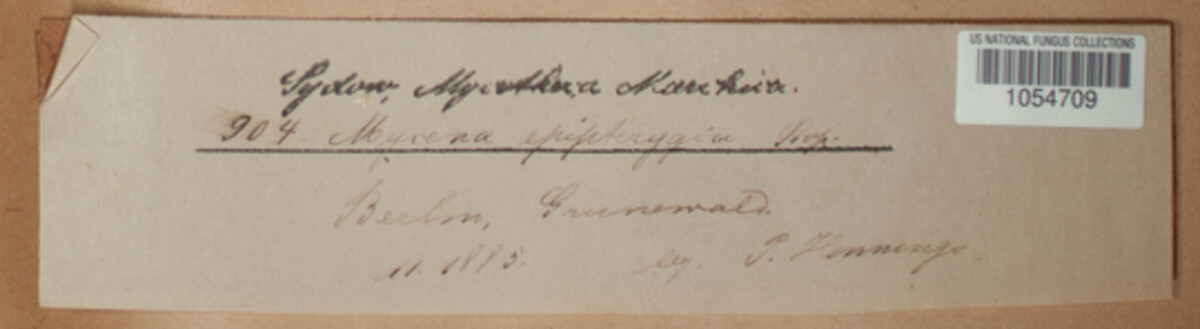 Sydow, Mycotheca Marchica.
904. Mycena epipterygia Scop.
Berlin, Grunewald.
11. 1885. leg. P. Hennings.
US NATIONAL FUNGUS COLLECTIONS
1054709